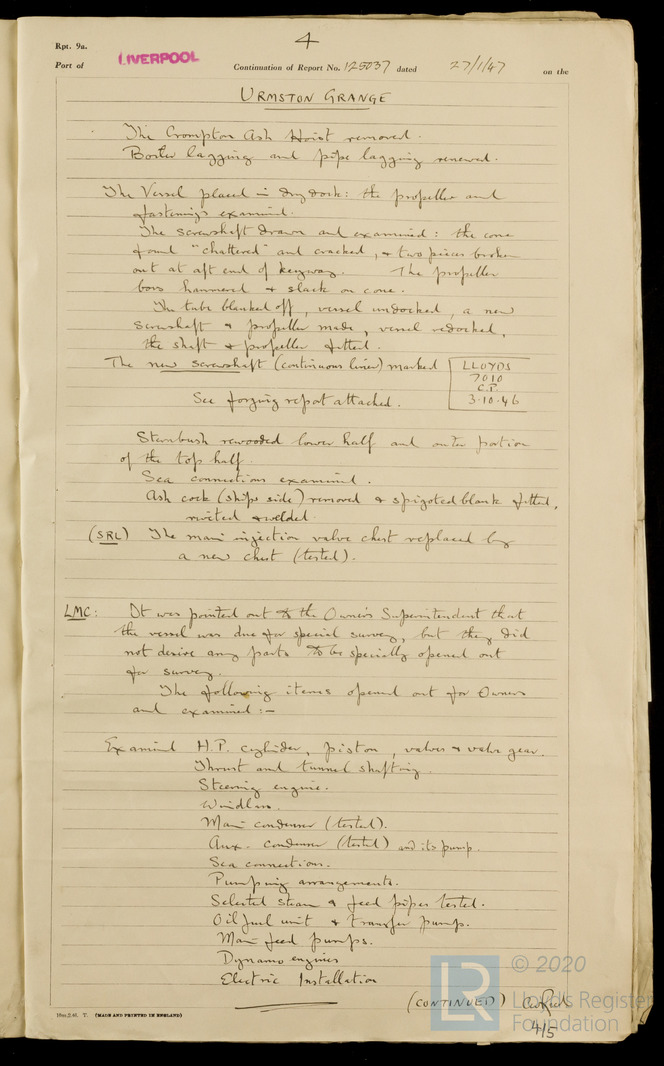 4
Rpt. 9a.
Port of LIVERPOOL Continuation of Report No. 125037 dated 27/1/47 on the
URMSTON GRANGE
The Crompton Ash Hoist removed.
Boiler lagging and pipe lagging renewed.
The Vessel placed in dry dock: the propeller and
fastenings examined.
The screwshaft drawn and examined: the cone
found "chattered" and cracked, & two pieces broken
out at aft end of keyway. The propeller
boss hammered & slack on cone.
The tube blanked off, vessel undocked, a new
screwshaft & propeller made, vessel redocked,
the shaft & propeller fitted.
The new screwshaft (continuous liner) marked LLOYDS
7010
C.P.
3.10.46
See forging report attached.
Sternbush rewooded lower half and outer portion
of the top half.
Sea connections examined.
Ash cock (ships side) removed & spigoted blank fitted,
riveted & welded.
(SRL) The main injection valve chest replaced by
a new chest (tested).
LMC: It was pointed out to the Owners Superintendent that
the vessel was due for special survey, but they did
not desire any parts to be specially opened out
for survey.
The following items opened out for Owners
and examined:-
Examined H.P. cylinder, piston, valves & valve gear.
Thrust and tunnel shafting.
Steering engine.
Windlass.
Main condenser (tested).
Aux. condenser (tested) and its pump.
Sea connections.
Pumping arrangements.
Selected steam & feed pipes tested.
Oil fuel unit & transfer pump.
Main feed pumps.
Dynamo engines
Electric Installation
(CONTINUED)
4/5
10m.2.46. T. (MADE AND PRINTED IN ENGLAND)
LR © 2020
Lloyd's Register
Foundation